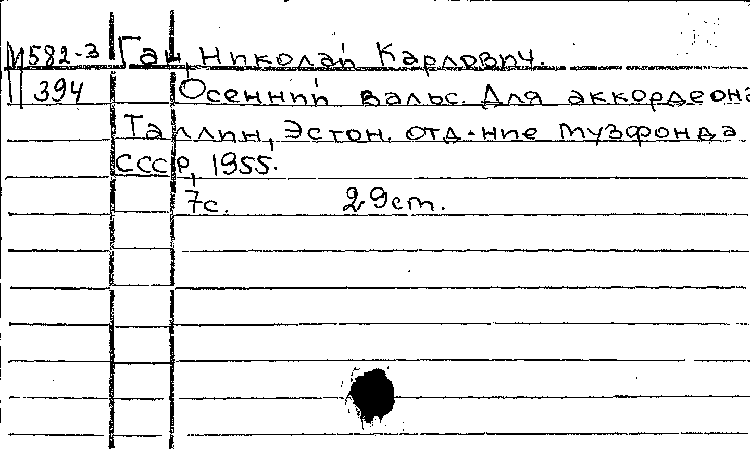 М582-3 Ган, Николай Карлович.
394 Осенний вальс. Для аккордеона
Таллин, Эстон. отд-ние Музфонда
СССР, 1955.
7с. 29ст.